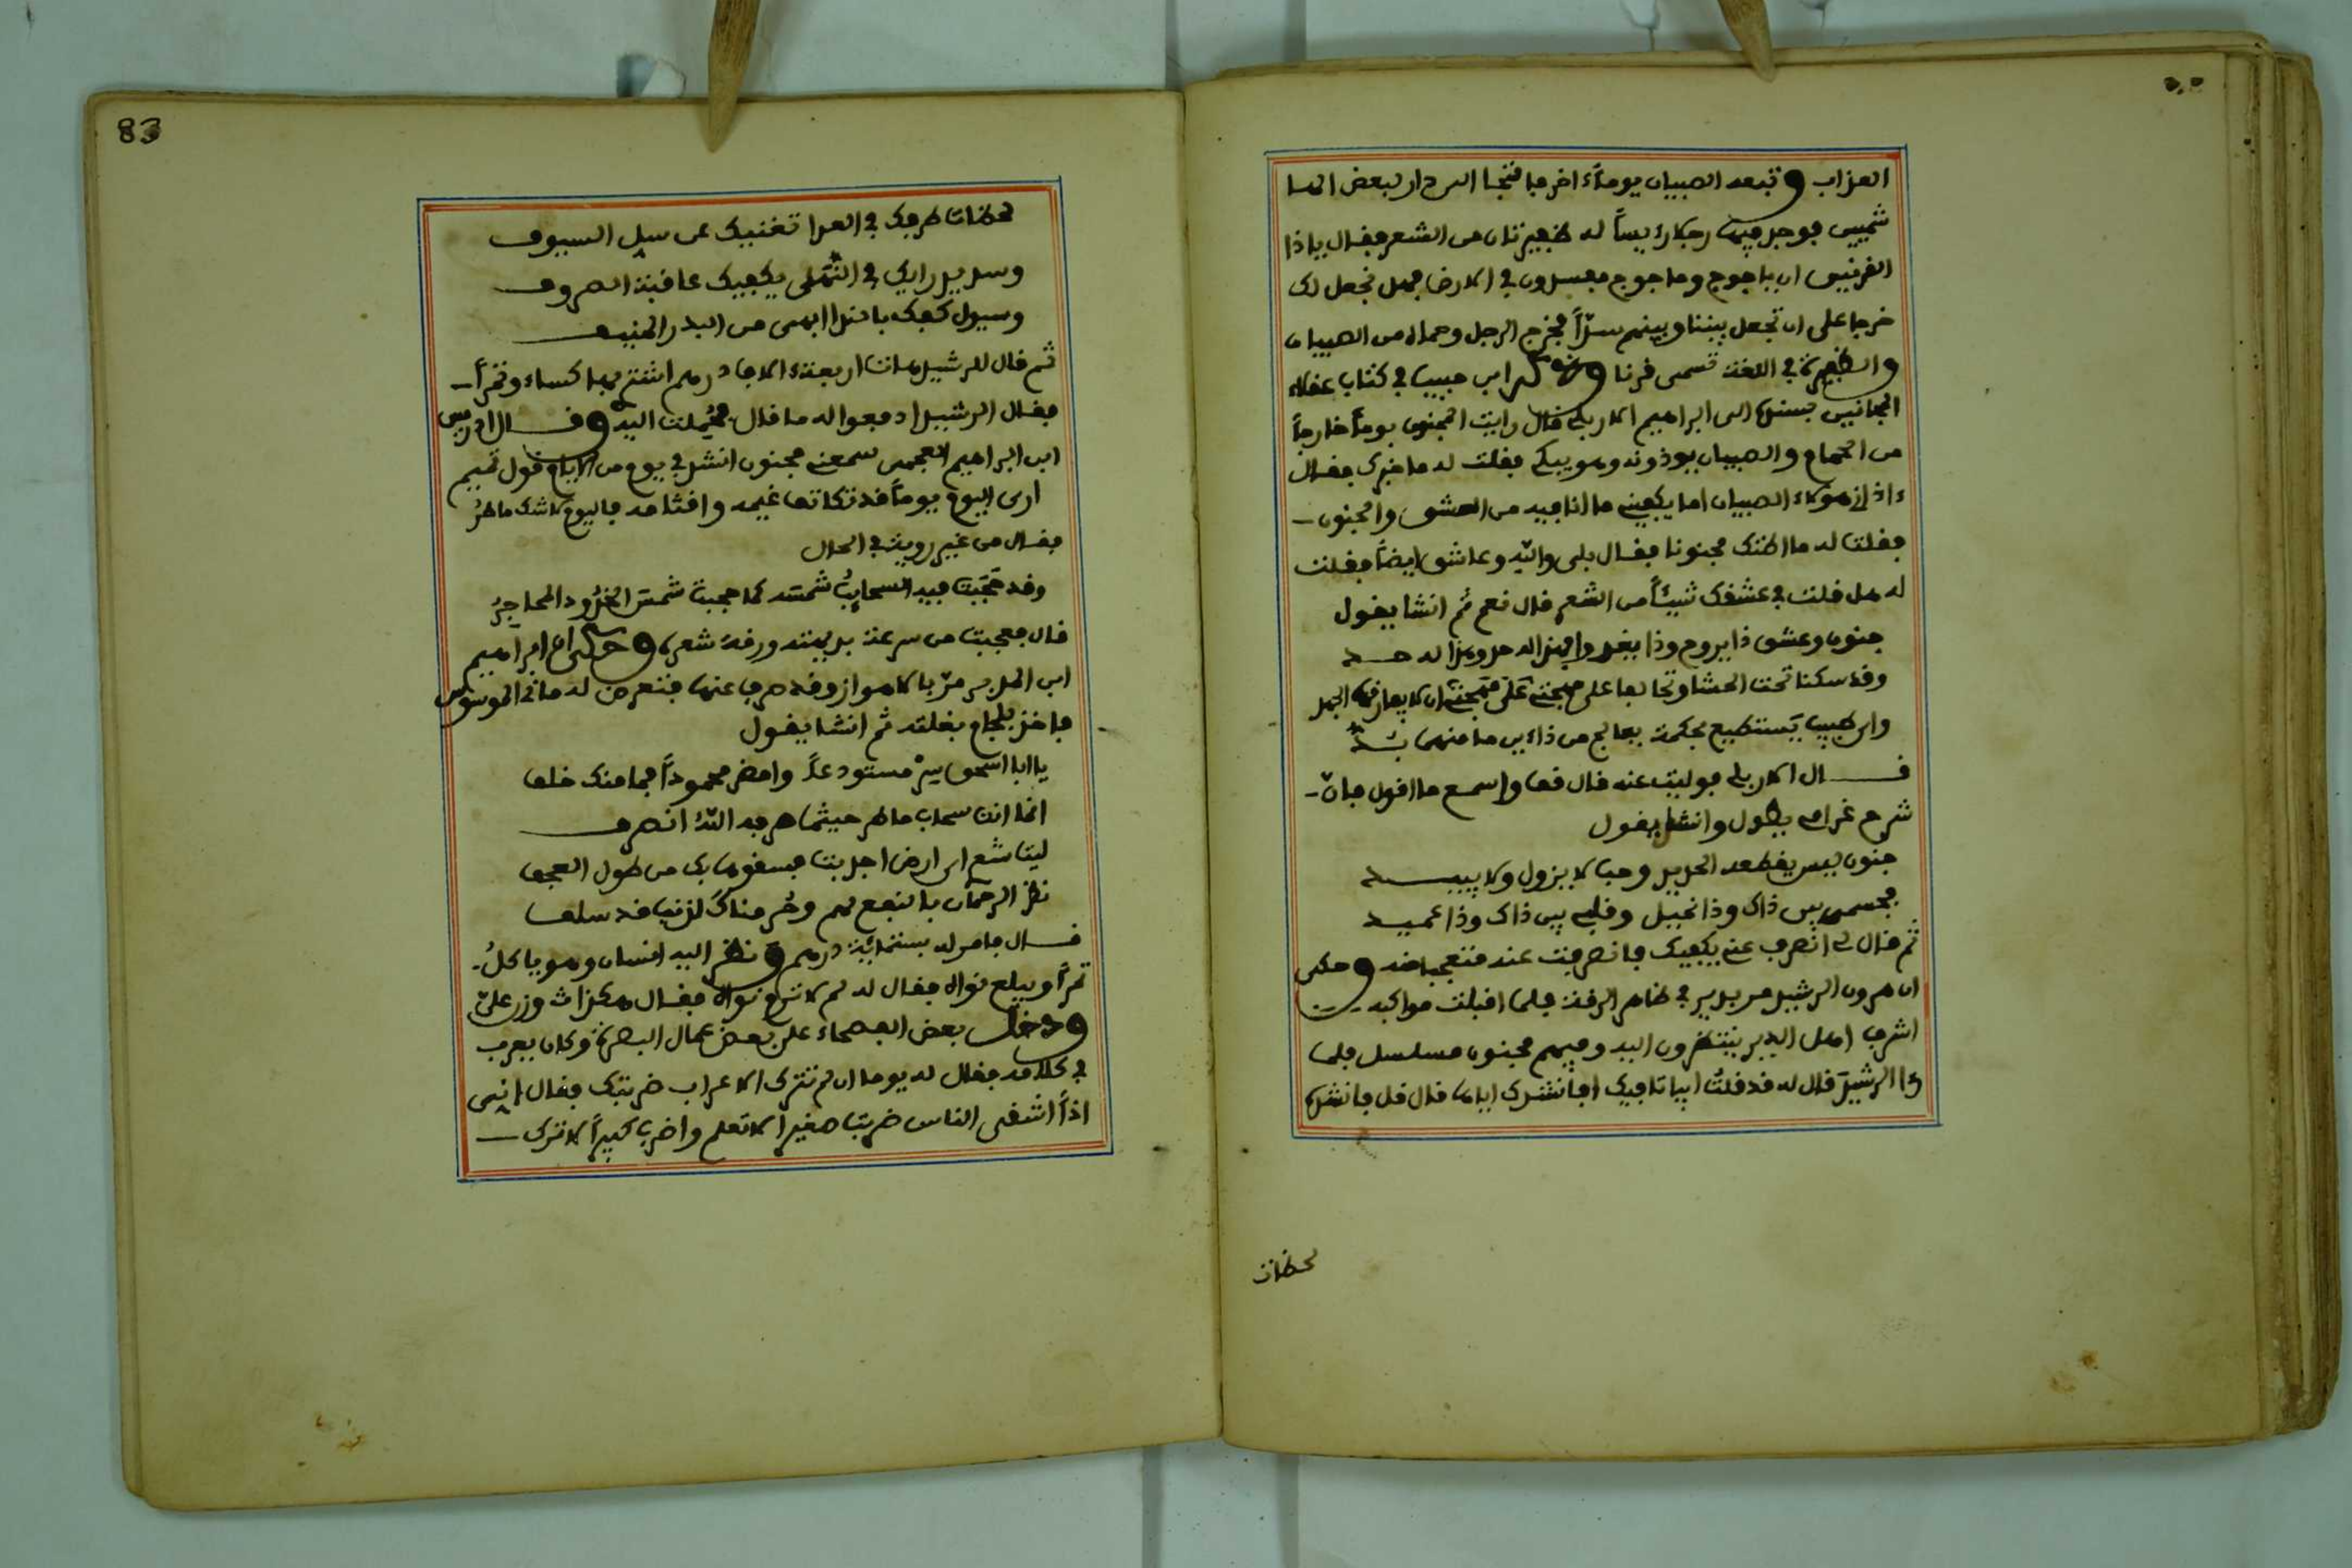 العذاب وتبعه الصبيان يوماً ءاخر فالتجا الى دار لبعض الها
شميين فوجد فيها رجلا رئيساً له ظفيرتان من الشعر فقال ياذا
القرنين ان ياجوج وماجوج مفسدون في الارض فهل نجعل لك
خرجا على ان تجعل بيننا وبينهم سدّاً فخرج الرجل وحماه من الصبيان
والظفيرة في اللغة تسمى قرنا وذكر ابن حبيب في كتاب عقلاء
المجانين بسنده الى ابراهيم الاربلي قال رايت المجنون يوماً خارجاً
من الحمام والصبيان يوذونه وهو يبكي فقلت له ما خبرك فقال
ءاذاني هؤلاء الصبيان اما يكفيني ما انا فيه من العشق والجنون
فقلت له ما اظنك مجنونا فقال بلى والله وعاشق ايضاً فقلت
له هل قلت في عشقك شيئاً من الشعر قال نعم ثم انشا يقول
جنون وعشق ذا يروح وذا يغدو فهذا له حد وهذا له حد
وقد سكنا تحت الحشا وتحالفا على مهجتي ان لا يفارقها الجهد
واي طبيب يستطيع بحكمة يعالج من داءين ما منهما بد
قال الاربلي فوليت عنه قال قف واسمع ما اقول فان
شرح غرامي يطول وانشا يقول
جنون ليس يقطعه الحديد وحب لا يزول ولا يبيد
فجسمي بين ذاك وذا نحيل وقلبي بين ذاك وذا عميد
ثم قال لي انصرف عني يكفيك فانصرفت عنه متعجبا منه وحكى
ان هرون الرشيد مر بدير في ظاهر الرقة فلما اقبلت مواكبه
اشرف اهل الدير ينتظرون اليه وفيهم مجنون مسلسل فلما
رءا الرشيد قال له قد قلت ابياتا فيك افانشدك اياها قال قل فانشده
لحظات
83
لحظات طرفك في العدا تغنيك عن سل السيوف
وسديد رايك في النهى يكفيك عاقبة الصروف
وسيول كفك بالندا ابهى من البدر المنيف
ثم قال للرشيد هات اربعة ءالاف درهم اشتر بها كساء وتمراً
فقال الرشيد ادفعوا له ما قال فحملت اليه وقال ادريس
ابن ابراهيم العجمي سمعت مجنون انشد في يوم من الايام قول تميم
ارى اليوم يوماً قد تكاثف غيمه واقتامه فاليوم لا شك ماطر
فقال من غير روية في الحال
وقد حجبت فيه السحايب شمسه كما حجبت شمس الخدود المحاجر
قال فعجبت من سرعة بديهته ورقة شعره وحكى ان ابراهيم
ابن المدبر مرّ بالاهواز وقد صرف عنها فتعرض له ماني الموسوس
فاخذ بلجام بغلته ثم انشا يقول
يا ابا اسحق سر مستودعاً وامض محموداً فما منك خلف
انما انت سحاب ماطر حيثما صرفه الله انصرف
ليت شعري اي ارض اجدبت فسقوها بك من طول العجف
نظر الرحمان بالنفع لهم وحرمناك لذنب قد سلف
قال فامر له بستمائة درهم ونظر اليه انسان وهو ياكل
تمراً ويبلع نواه فقال له لم لا ترم نواه فقال هكذا وزن علي
ودخل بعض الفصحاء على بعض عمال البصرة وكان يعرب
في كلامه فقال له يوما ان لم تترك الاعراب ضربتك فقال انني
اذاً اشقى الناس ضربت صغيرا لاتعلم واضرب كبيراً لاترك